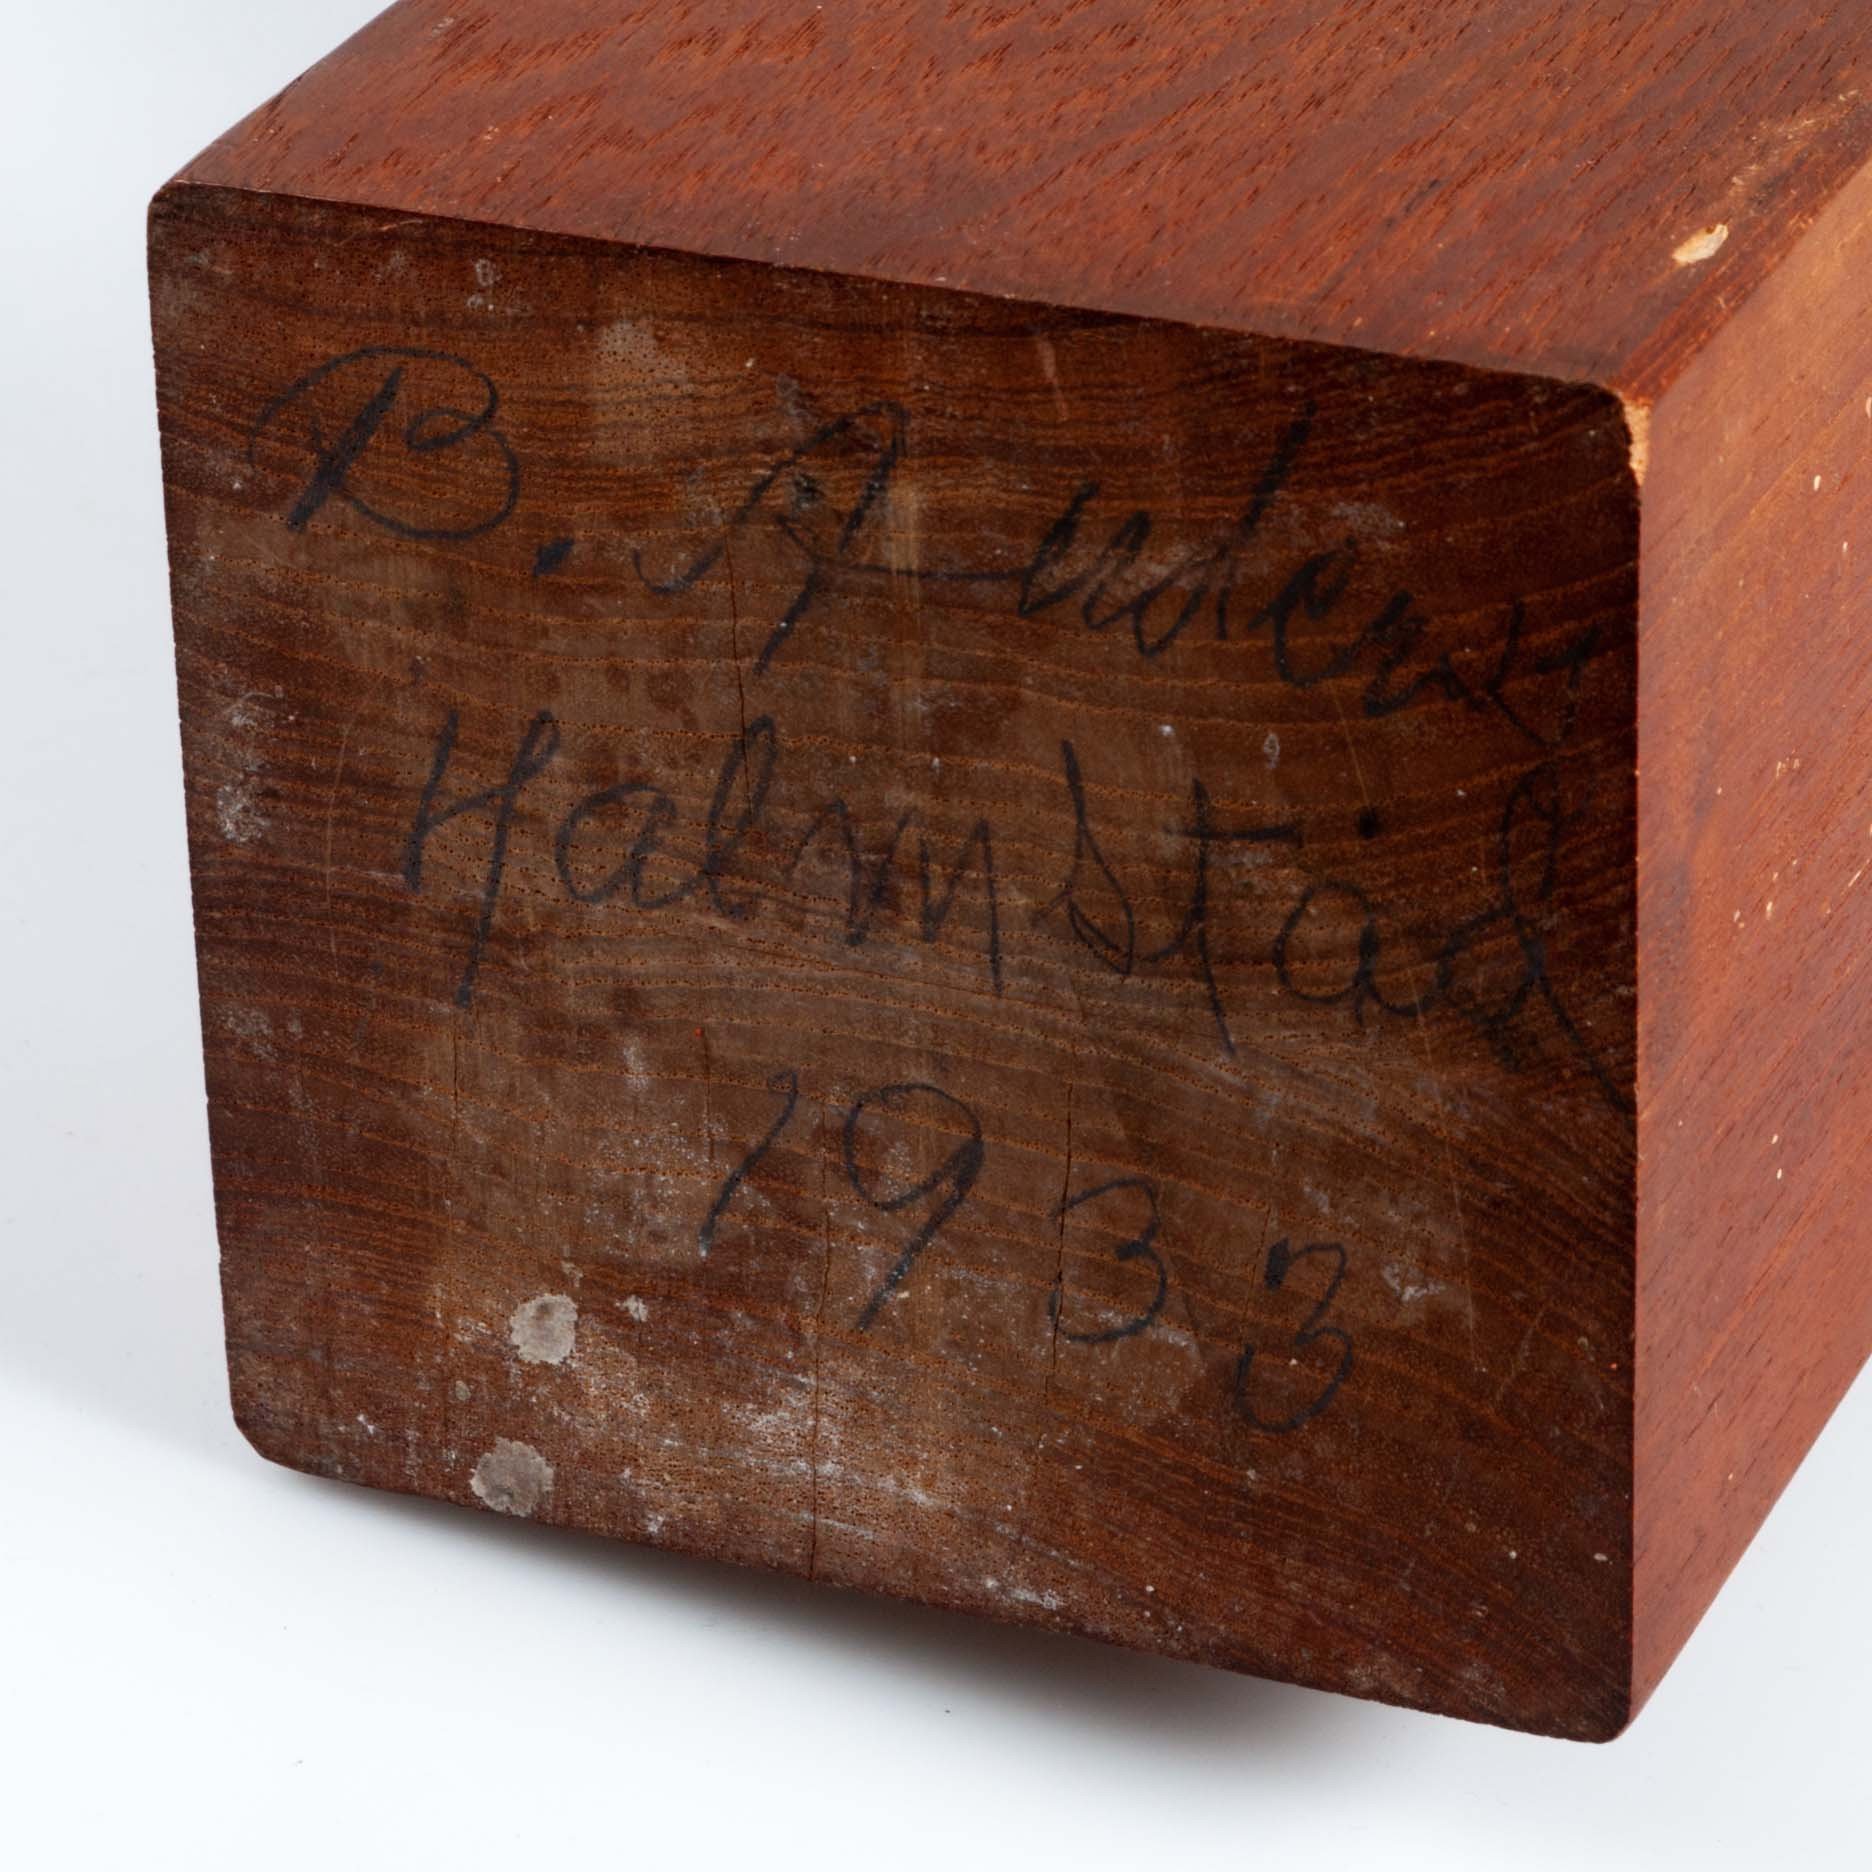 B. Anderst
Halmstad
1933